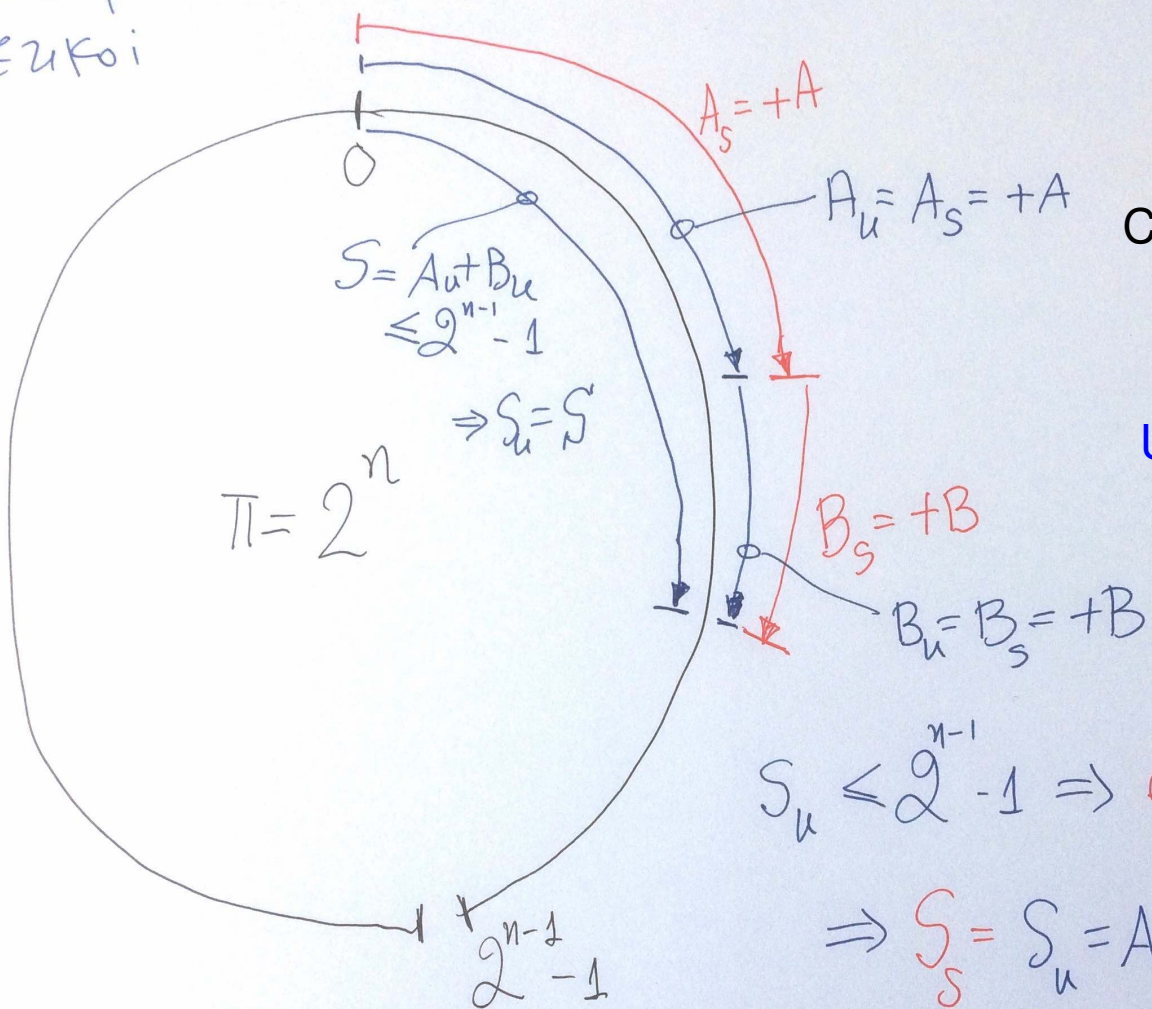 A_s = +A
0
A_u = A_s = +A
C
S = A_u + B_u
≤ 2^{n-1} - 1
⇒ S_u = S
Π = 2^n
B_s = +B
B_u = B_s = +B
S_u ≤ 2^{n-1} - 1 ⇒
⇒ S_s = S_u = A
2^{n-1} - 1